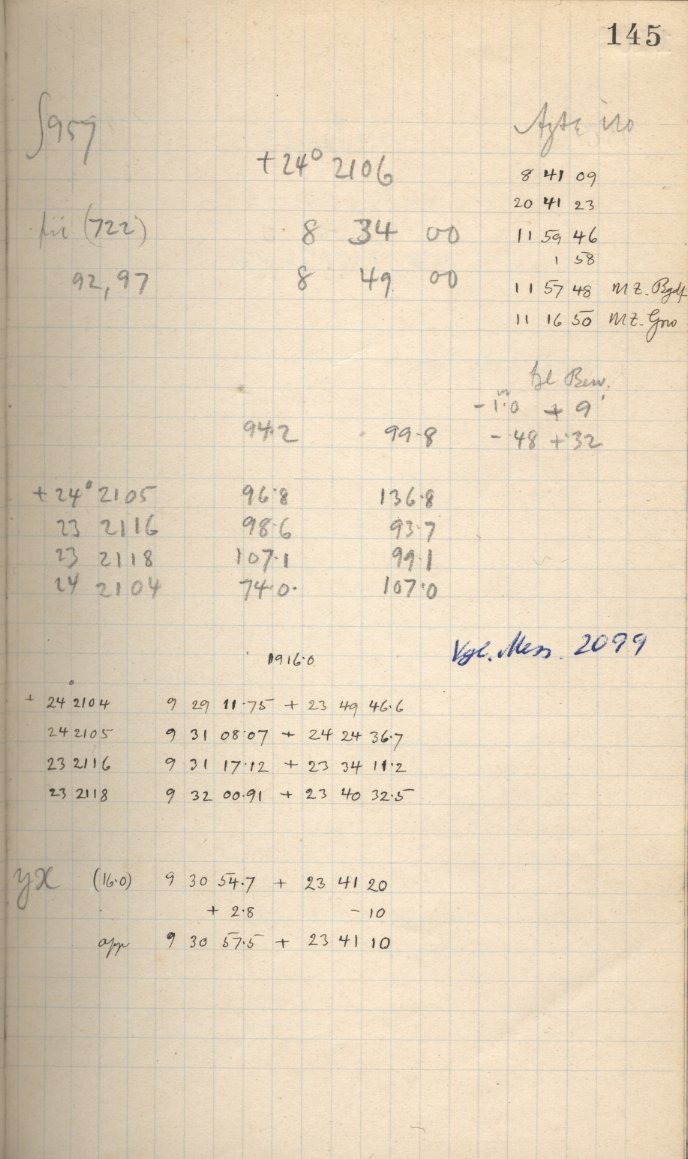 145
957
+24° 2106
8 41 09
20 41 23
(722) 8 34 00
11 59 46
1 58
92,97 8 49 00
11 57 48 MZ. Bgdf
11 16 50 MZ. Grw
Bew.
-1·0 + 9'
94·2 99·8 -48 +32
+24° 2105 96·8 136·8
23 2116 98·6 93·7
23 2118 107·1 99·1
24 2104 74·0· 107·0
1916·0 Vgl. Mess. 2099
+ 24° 2104 9 29 11·75 + 23 49 46·6
24 2105 9 31 08·07 + 24 24 36·7
23 2116 9 31 17·12 + 23 34 11·2
23 2118 9 32 00·91 + 23 40 32·5
yx (16·0) 9 30 54·7 + 23 41 20
+ 2·8 - 10
app 9 30 57·5 + 23 41 10